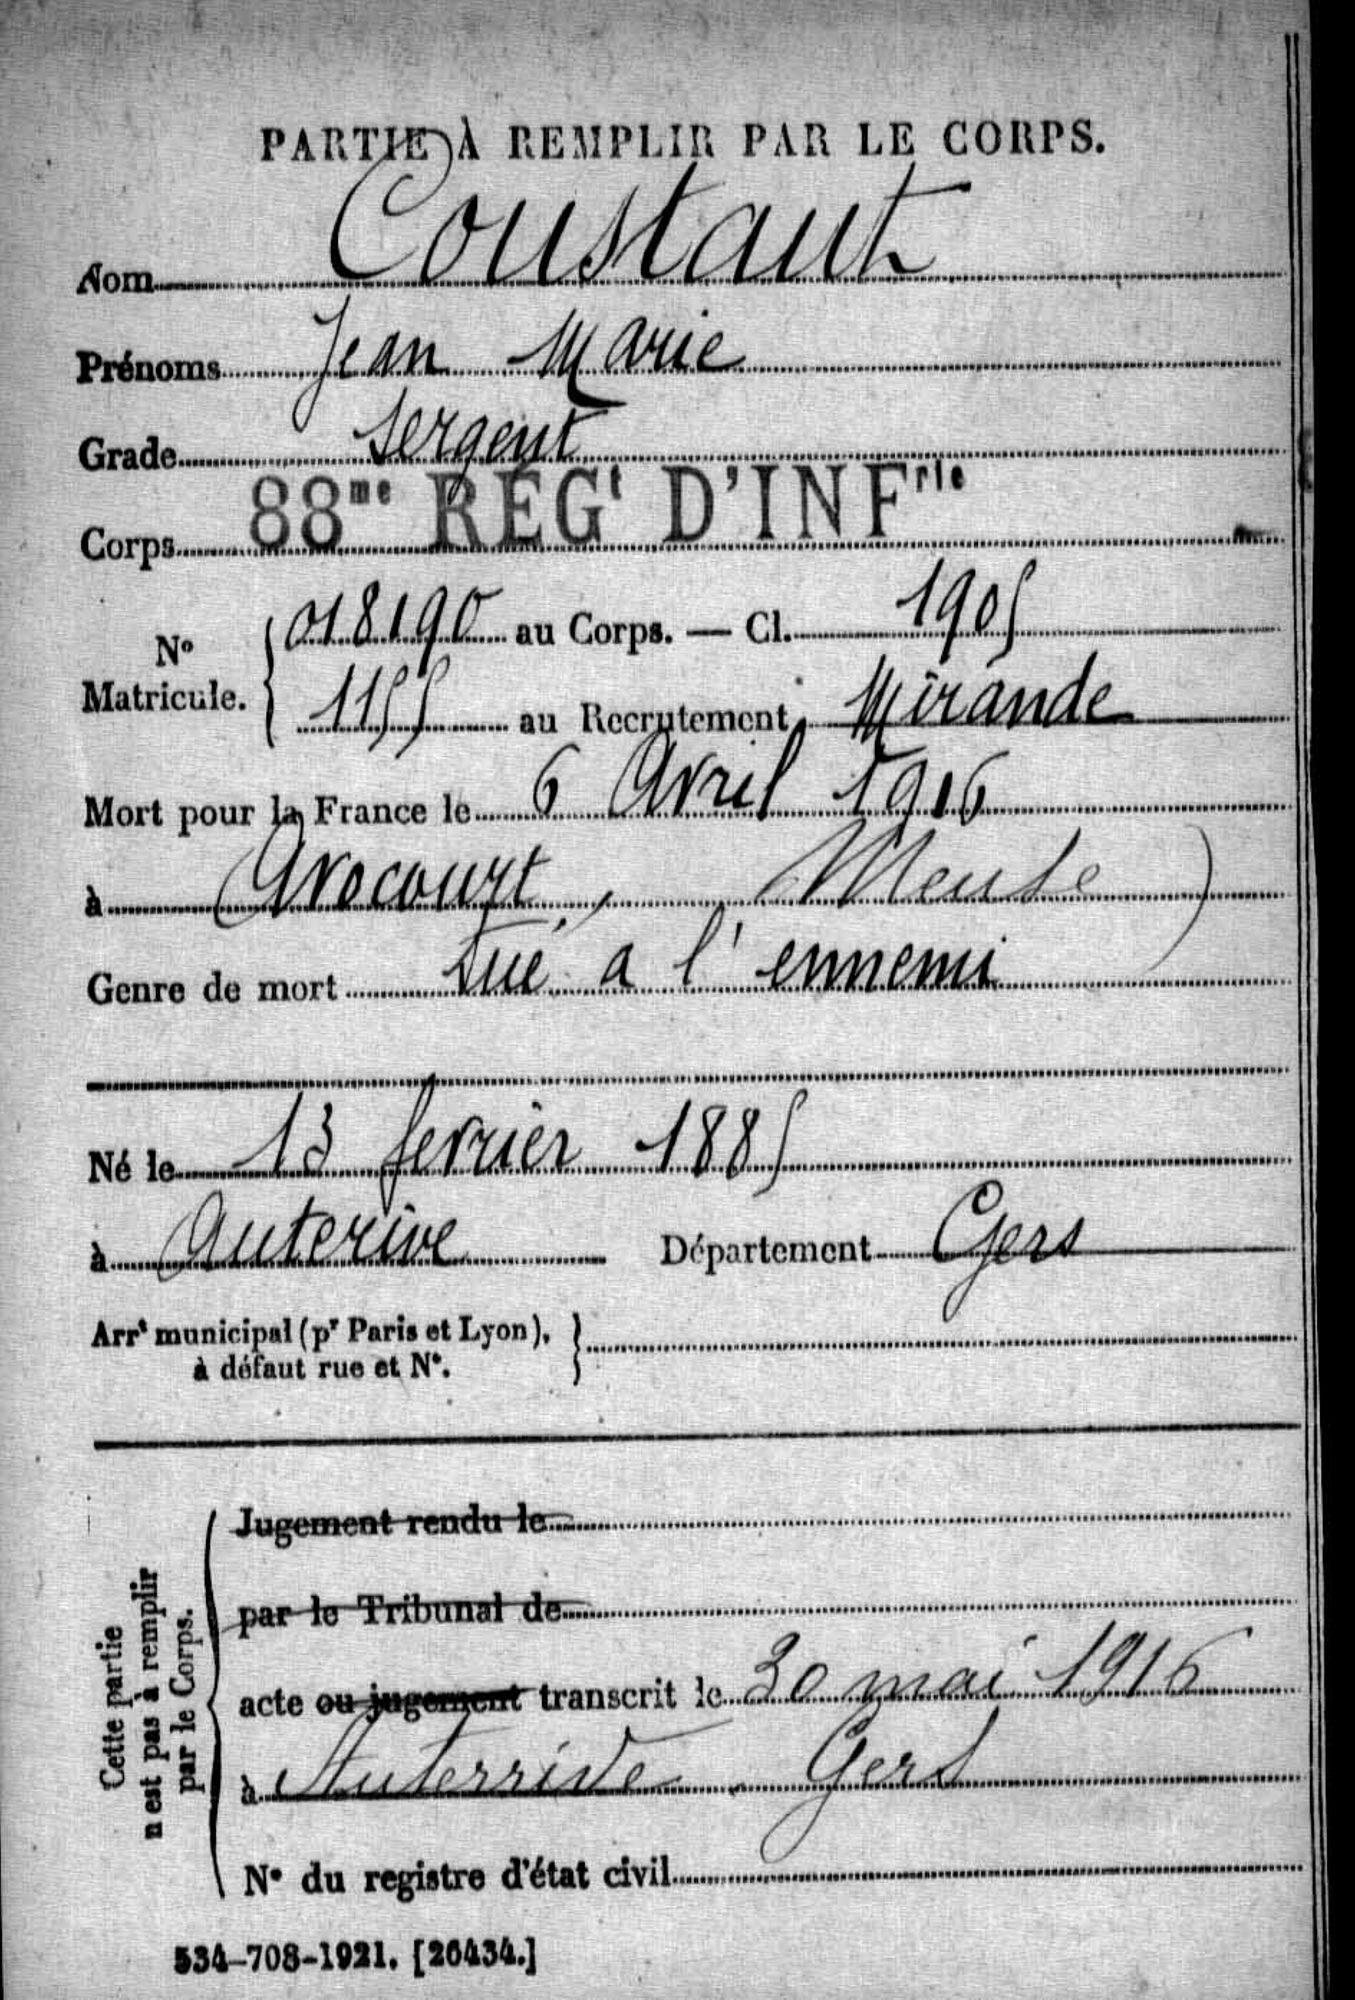 PARTIE À REMPLIR PAR LE CORPS.
Nom Constant
Prénoms Jean Marie
Grade Sergent
Corps 88me RÉGt D'INFrie
No Matricule. { 018190 au Corps. — Cl. 1905
1155 au Recrutement Mirande
Mort pour la France le 6 Avril 1916
à Avocourt, (Meuse)
Genre de mort tué a l'ennemi
Né le 13 fevrier 1885
à Auterive Département Gers
Arrt municipal (pr Paris et Lyon), }
à défaut rue et No.
Cette partie
n'est pas à remplir
par le Corps.
Jugement rendu le
par le Tribunal de
acte ou jugement transcrit le 30 mai 1916
à Auterrive Gers
No du registre d'état civil
534-708-1921. [26434.]